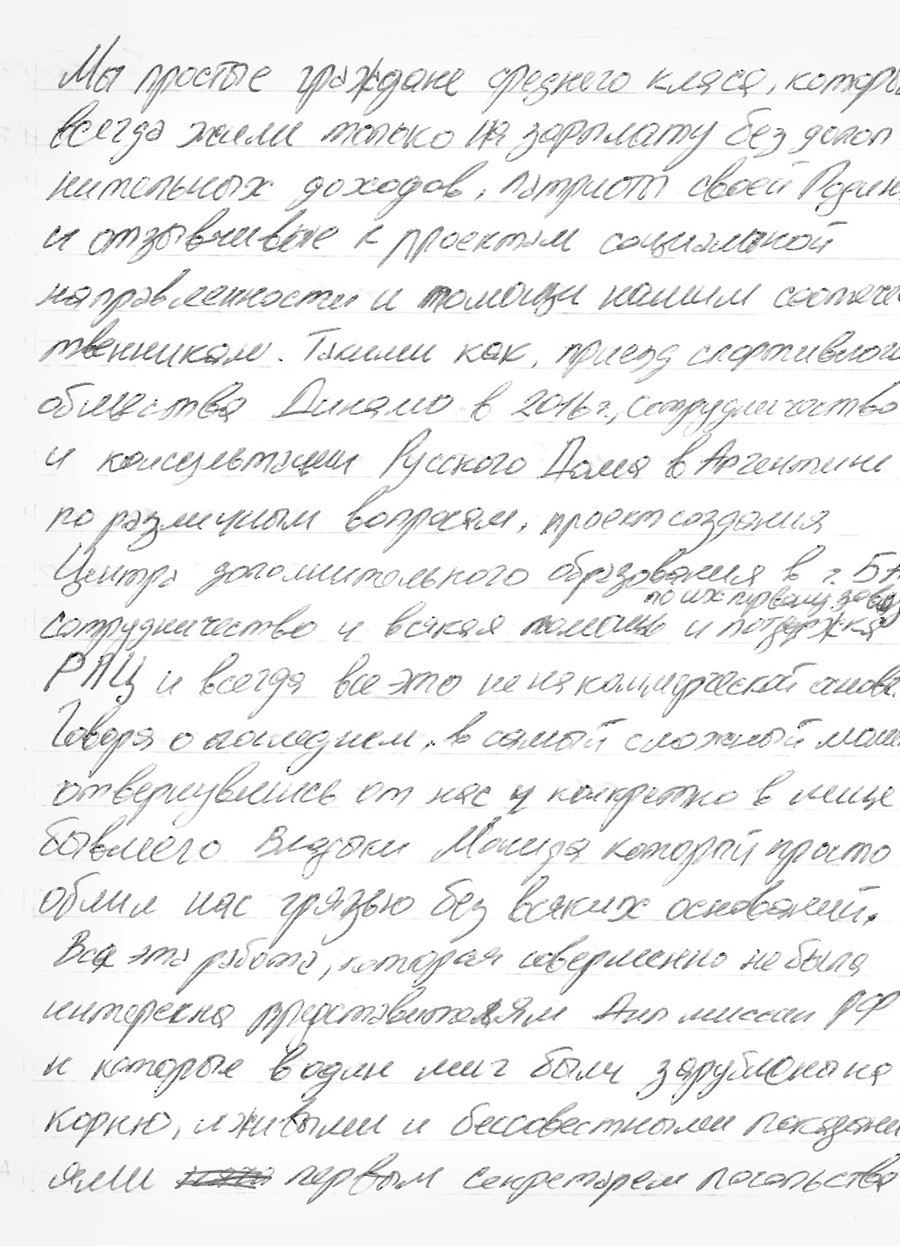 Мы простые граждане среднего класа, которы
всегда жили только на зарплату без допол
нительных доходов, патриоты своей Родин
и отзывчивые к проектам социальной
направленности и помощи нашим соотечес
твенникам. Такими как, приезд спортивного
общества Динамо в 2016 г., сотрудничество
и консультации Русского Дома в Аргентине
по различным вопросам, проект создания
Центра дополнительного образования в г. БА
по их первому зову
сотрудничество и всякая помощь и поддержка
РПЦ и всегда все это не на коммерческой основе
Говоря о последнем, в самый сложный моме
отвернувшись от нас и конкретно в лице
бывшего Владыки который просто
облил нас грязью без всяких оснований.
Вся эта работа, которая совершенно не была
интересна представителям Дип миссии РФ
и которые в один миг были зарублена на
корню, лживыми и бессовестными показани
ями первым секретарем посольства